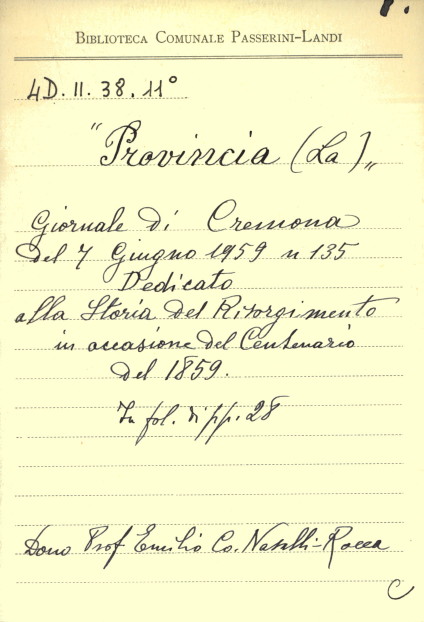 BIBLIOTECA COMUNALE PASSERINI-LANDI
4D. II. 38. 11°
"Provincia (La)„
Giornale di Cremona
del 7 Giugno 1959 n 135
Dedicato
alla Storia del Risorgimento
in occasione del Centenario
del 1859.
In fol. di pp. 28
Dono Prof Emilio Co. Nasalli-Rocca
C